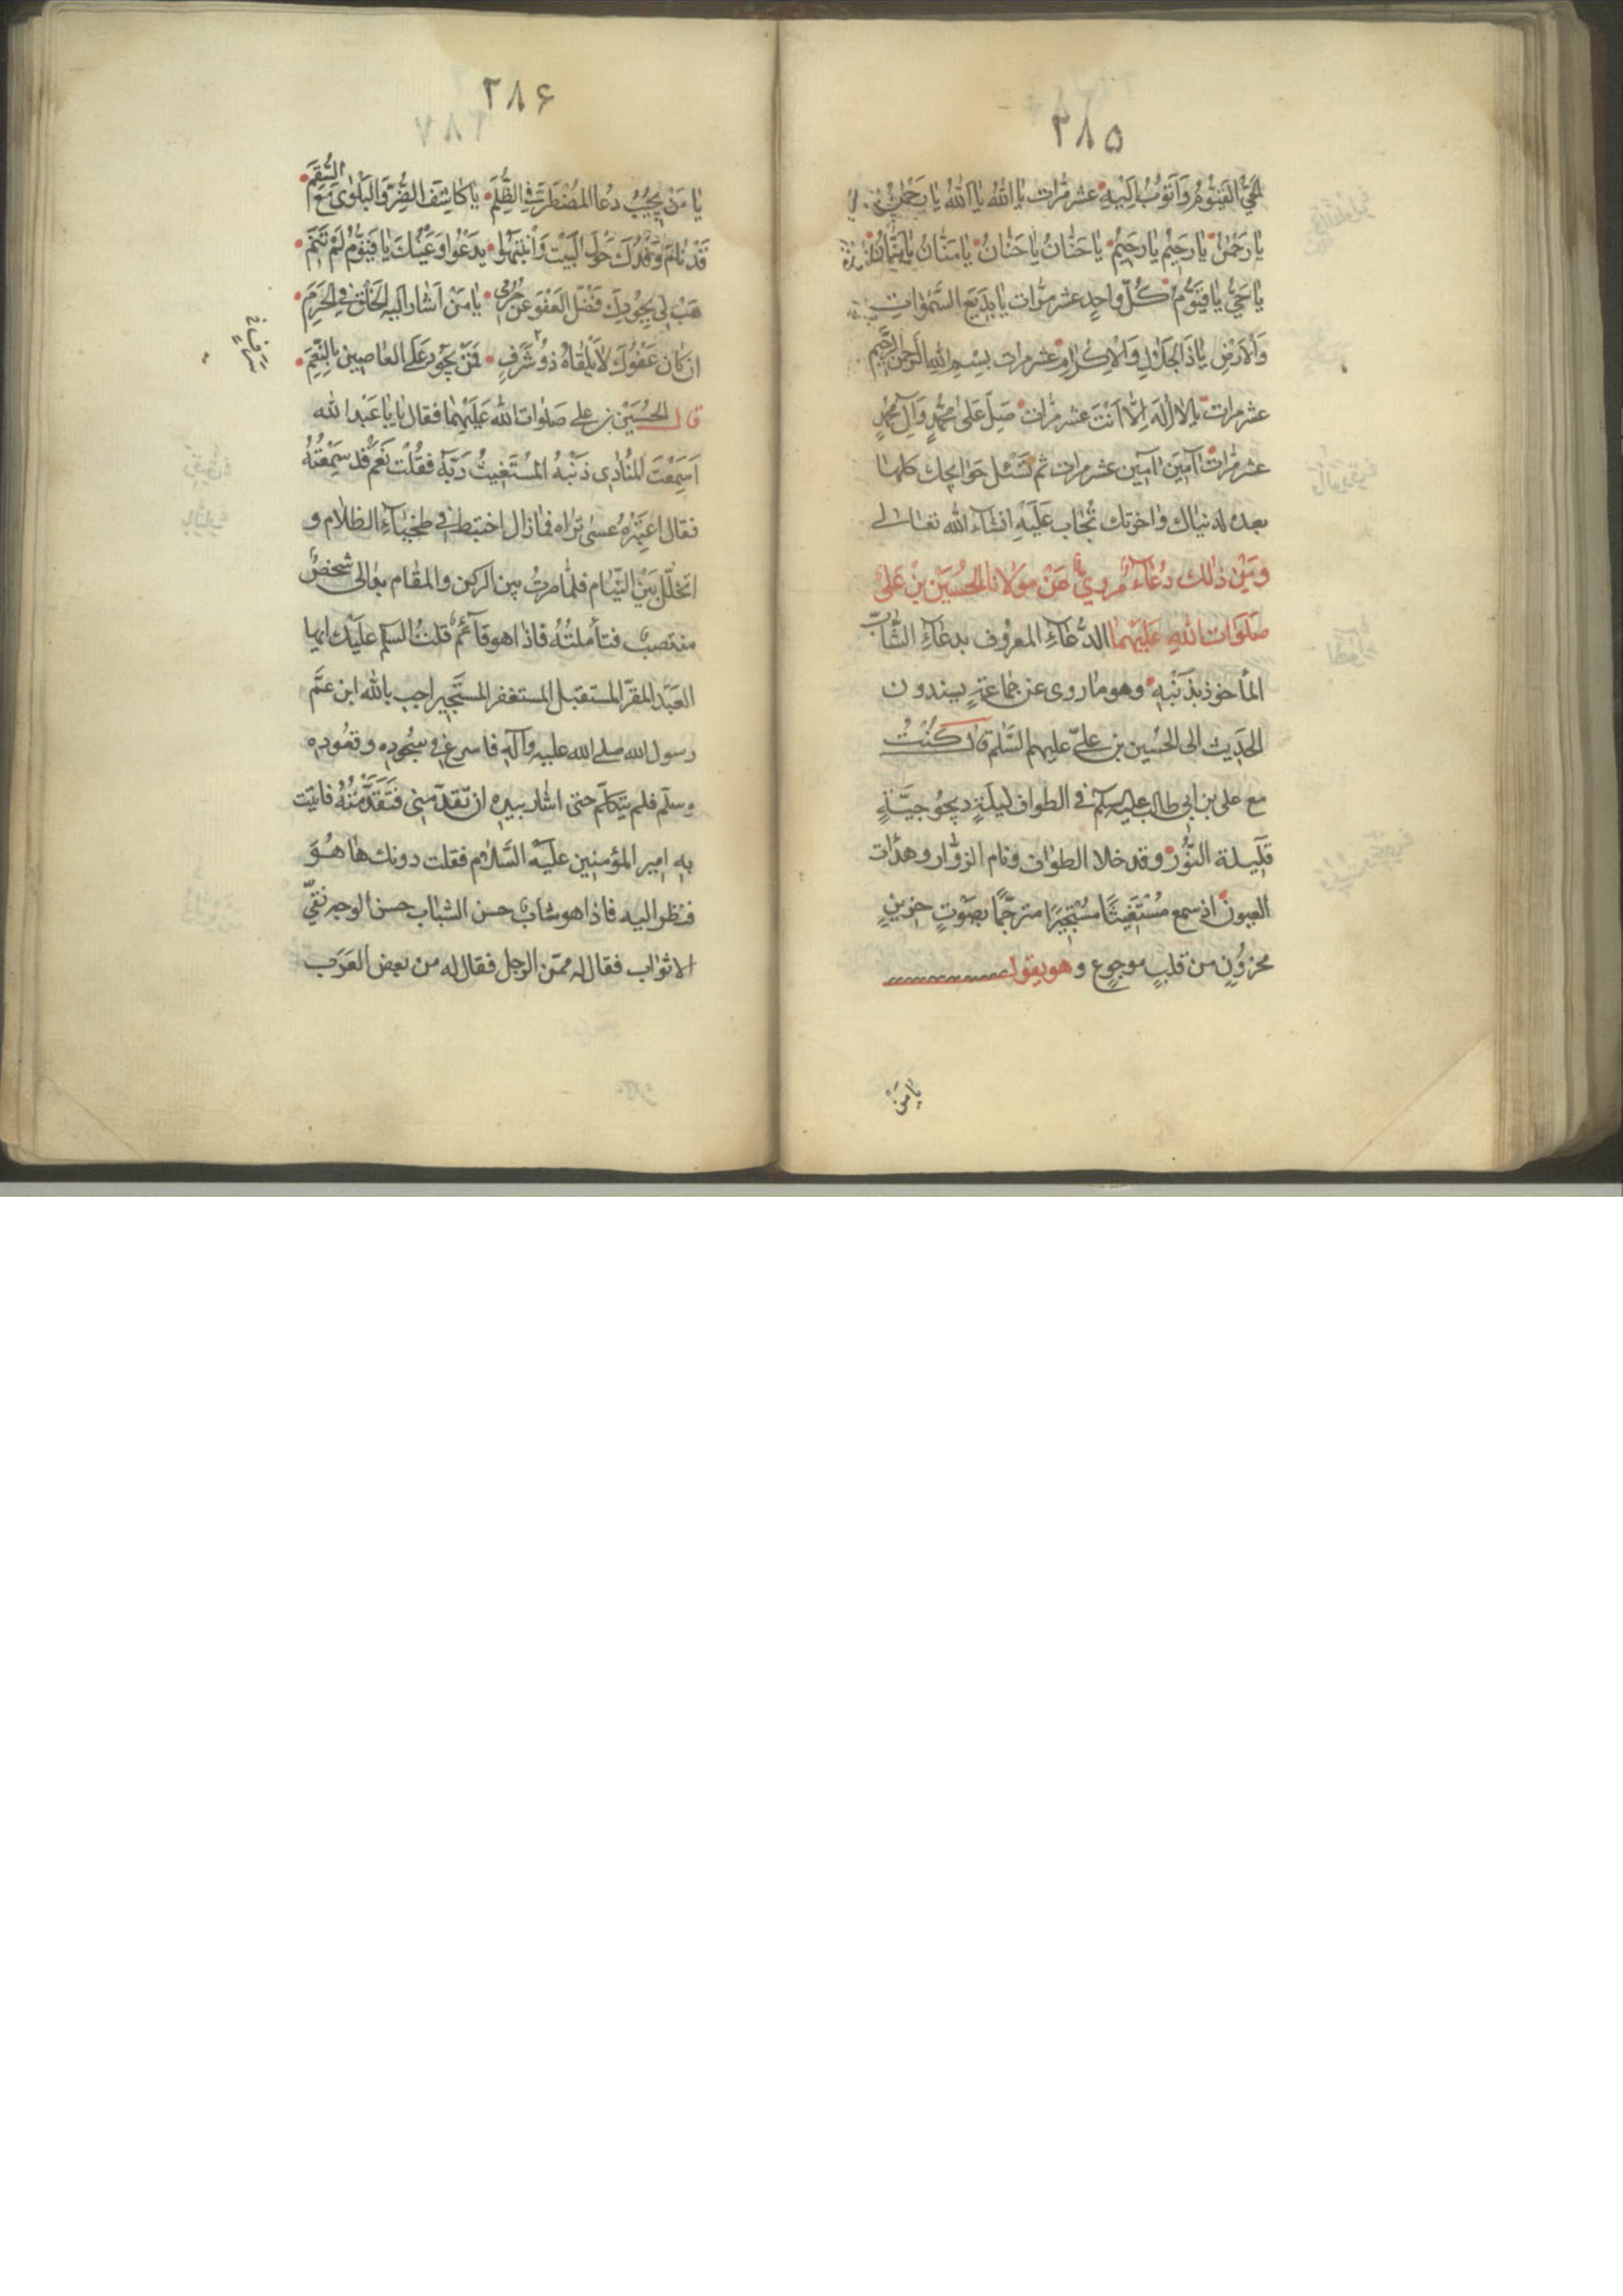 ٣٨٥
الحَيُّ القَيُّومُ وَاَتُوبُ اِلَيْهِ عشر مرّات يا اَللّٰهُ يا اَللّٰهُ يا رَحْمٰنُ
يا رَحْمٰنُ يا رَحيْمُ يا رَحيْمُ يا حَنّانُ يا حَنّانُ يا مَنّانُ يا مَنّانُ
يا حَيُّ يا قَيُّومُ كُلّ واحِدٍ عشر مرّات يا بَديْعَ السَّمٰوٰاتِ
وَالاَرْضِ يا ذَا الجَلالِ وَالاِكْرامِ عشر مرات بِسْمِ اللهِ الرَّحمٰنِ الرَّحيم
عشر مرات يا لا اِلٰهَ اِلّا اَنْتَ عشر مرّات صَلِّ عَلىٰ مُحَمَّدٍ وَآلِ مُحَمَّدٍ
عشر مرّات آمينَ آمين عشر مرات ثم تَسْئل حَوايجك كلها
بعده لدنياك واخرتك تُجاب عَلَيهِ انشاء الله تعالى
ومِنْ ذٰلك دُعاءٌ مرويٌّ عَنْ مَوْلانا الحُسَيْنِ بْنِ عَلىٍّ
صَلَوات اللهِ عَلَيْهِما الدُّعاءِ المعرُوف بدعاءِ الشّابّ
المأخوذ بذَنْبِهِ وهو ما روى عن جماعةٍ يسندون
الحَديث الى الحُسَيْن بن علىّ عليهم السَّلم قال كُنْتُ
مع على بن ابى طالب عليه السلم فى الطواف لَيلَةٍ ديجُوجيَّةٍ
قَليلة النُّور وقد خلا الطواف ونام الزوّار وهدأت
العيون اذ سمع مُسْتَغيثًا مُسْتَجيرًا مترحّمًا بصَوْتٍ حزينٍ
محزوُنٍ من قلبٍ موجوعٍ وهو يقول
يا مَنْ
٣٨۶
يا مَنْ يُجيْبُ دعُا المُضْطَرِّ فِى الظُّلَمِ يا كاشِفَ الضُّرِّ وَالبَلْوٰى مَعَ السَّقَمِ
قَدْ نامَ وَفْدُكَ حَوْلَ البَيْتِ وَانْتَبَهُوا يدَعُوا وَعَيْنُكَ يا قَيُّومُ لَمْ تَنَمِ
هَبْ لى بِجُودِكَ فَضْلَ العَفْوِ عَنْ جُرْمى يا مَنْ اَشارَ اليه الخَلْق فى الحَرَمِ
ان كان عَفْوُكَ لا يَلْقاهُ ذوُ شَرَفٍ فَمَنْ يَجُودُ عَلَى العاصِينَ بالنِّعَمِ
قال الحُسَيْن بن على صَلوات الله عَلَيْهِما فقال يا يا عَبْد الله
اَسَمِعْتَ المُنادِى ذَنْبَهُ المُسْتَغيثُ رَبَّهُ فقُلْت نَعَمْ قَد سَمِعْتُهُ
فقال اعتَبِرْهُ عسىٰ تَراه فما زال اختبط فى طخياءِ الظلام و
اتخلّل بَيْنَ النّيام فلما صرتُ بين الركن والمقام بدا لى شخصٌ
منتصبٌ فتأملتُهُ فاذا هو قآئمٌ قلتُ السلم علَيْك ايها
العَبْد المقرّ المستقيل المستغفر المستَجير اجب بالله ابن عمَّ
رسول الله صلى الله عليه وآله فاسرع فى سجُوده وقعُوده
وسلّم فلم يتكلّم حتى اشار بيده ان تَقدّمْنى فَتَقَدَّمْتُهُ فاتيْت
به امير المؤمنين عليْه السَّلام فقلت دونك ها هُوَ
فنظر اليه فاذا هو شابٌّ حسن الشباب حسن الوجه نقيّ
الاثواب فقال له ممَّن الرجل فقال له من بعض العَرَب